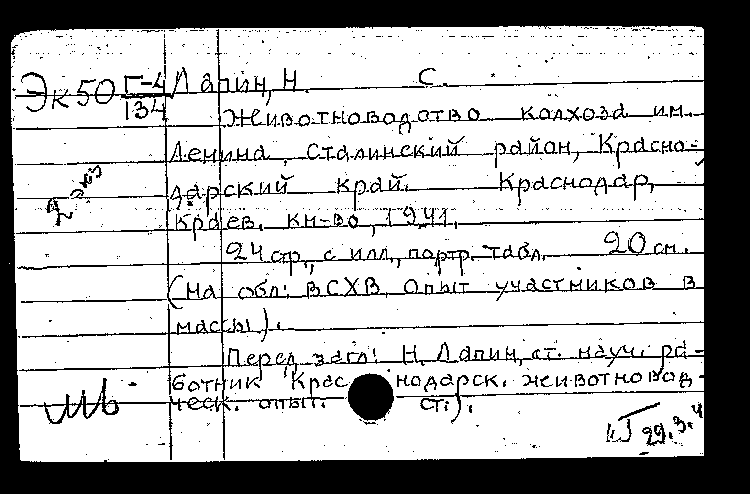 Эк50 Г-4/134 Лапин, Н. С.
Животноводство колхоза им.
Ленина, Сталинский район, Красно-
дарский край. Краснодар,
Краев. кн-во, 1941.
24 стр., с илл., портр. табл. 20 см.
(На обл: ВСХВ. Опыт участников в
массы).
Перед загл: Н. Лапин, ст. науч. ра-
ботник Краснодарск. животновод-
ческ. опыт. ст.).
2 экз